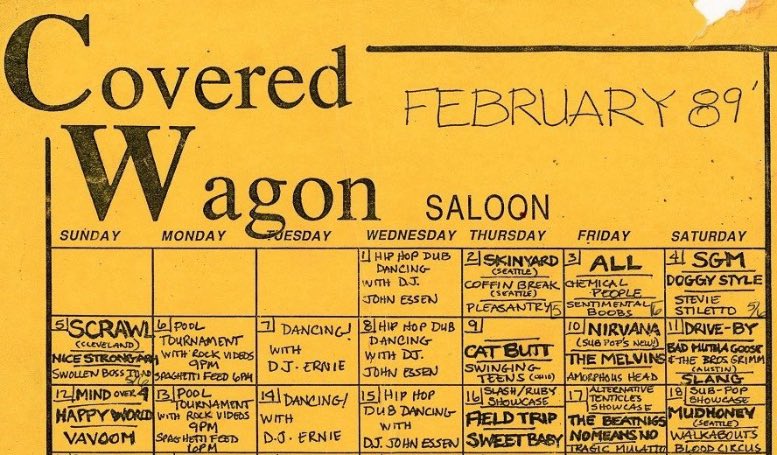 Covered
Wagon
SALOON
FEBRUARY 89'
SUNDAY MONDAY TUESDAY WEDNESDAY THURSDAY FRIDAY SATURDAY
1 HIP HOP DUB
DANCING
WITH D.J.
JOHN ESSEN
2 SKINYARD
(SEATTLE)
COFFIN BREAK
(SEATTLE)
PLEASANTRY
3 ALL
CHEMICAL
PEOPLE
SENTIMENTAL
BOOBS
4 SGM
DOGGY STYLE
STEVIE
STILETTO
5 SCRAWL
(CLEVELAND)
NICE STRONG ARM
SWOLLEN BOSS TOAD
6 POOL
TOURNAMENT
WITH ROCK VIDEOS
9PM
SPAGHETTI FEED 6PM
7 DANCING!
WITH
D.J. ERNIE
8 HIP HOP DUB
DANCING
WITH DJ.
JOHN ESSEN
9
CAT BUTT
SWINGING
TEENS (OHIO)
10 NIRVANA
(SUB POP'S NEW)
THE MELVINS
AMORPHUS HEAD
11 DRIVE-BY
BAD MUTHA GOOSE
& THE BROS GRIMM
(AUSTIN)
SLANG
12 MIND OVER 4
HAPPY WORLD
VAVOOM
13 POOL
TOURNAMENT
WITH ROCK VIDEOS
9PM
SPAGHETTI FEED
6PM
14 DANCING!
WITH
D.J. ERNIE
15 HIP HOP
DUB DANCING
WITH
DJ. JOHN ESSEN
16 SLASH/RUBY
SHOWCASE
FIELD TRIP
SWEET BABY
17 ALTERNATIVE
TENTICLES
SHOWCASE
THE BEATNIGS
NOMEANSNO
TRAGIC MULATTO
18 SUB-POP
SHOWCASE
MUDHONEY
(SEATTLE)
WALKABOUTS
BLOOD CIRCUS